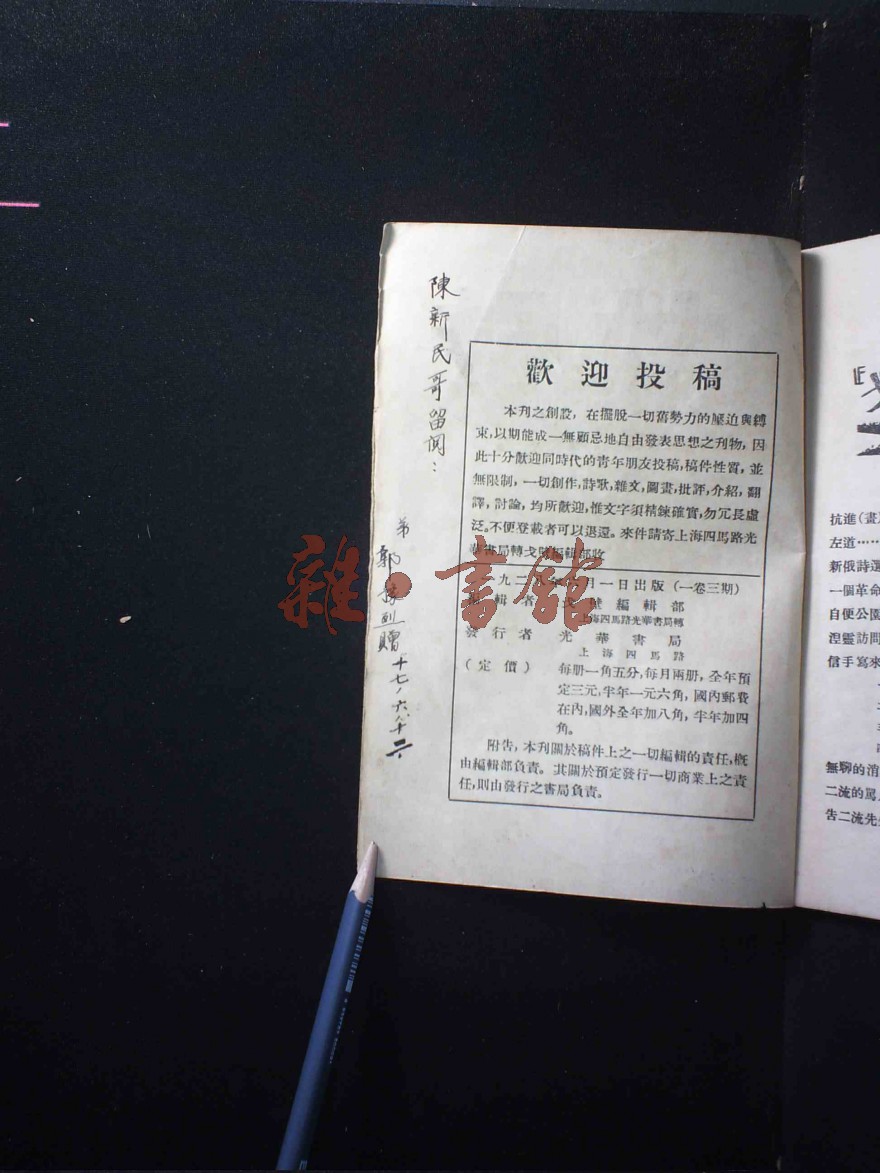 陳新民哥留閱：
弟
郭
贈
十七，六，十二，
歡迎投稿
本刊之創設，在擺脫一切舊勢力的壓迫與縛
束，以期能成一無顧忌地自由發表思想之刊物，因
此十分歡迎同時代的青年朋友投稿，稿件性質，並
無限制，一切創作，詩歌，雜文，圖畫，批評，介紹，翻
譯，討論，均所歡迎，惟文字須精鍊確實，勿冗長虛
泛。不便登載者可以退還。來件請寄上海四馬路光
華書局轉戈壁編輯部收
一九二八年六月一日出版（一卷三期）
編輯者 戈壁編輯部
上海四馬路光華書局轉
發行者 光華書局
上海四馬路
（定價） 每册一角五分，每月兩册，全年預
定三元，半年一元六角，國內郵費
在內，國外全年加八角，半年加四
角。
附告，本刊關於稿件上之一切編輯的責任，概
由編輯部負責。其關於預定發行一切商業上之責
任，則由發行之書局負責。
雜·書館
抗進（畫）
左道……
新俄詩選
一個革命
自便公園
湼靈訪問
信手寫來
無聊的消
二流的罵
告二流先